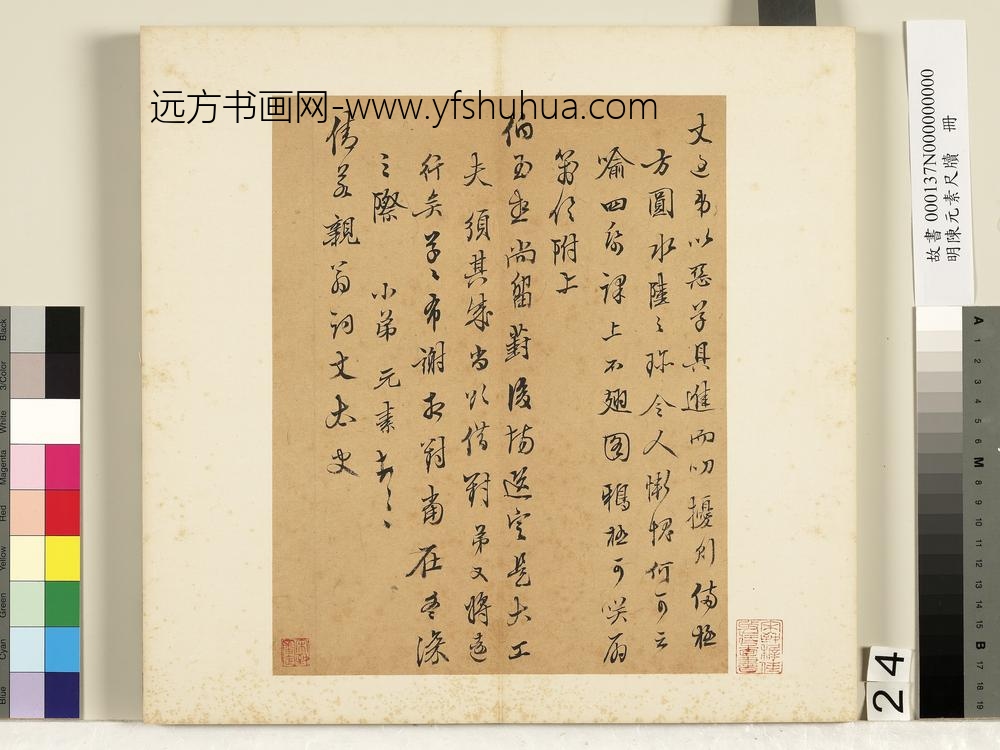 远方书画网-www.yfshuhua.com
故書 000137N000000000
明陳元素尺牘 冊
以惡草具進而叨擾則備極
方圓水陸之珍令人慚愧何可云
喻四 課上不翅圖鴉極可哭
附上
伯玉 尚留對後場選定是大工
夫須其成當以借對弟又將遠
行矣草草布謝相對當在冬深
之際 小弟元素
倩若親翁詞丈太史
24
Black
3/Color
White
Magenta
Red
Yellow
Green
Cyan
Blue
A 1 2 3 4 5 6 M 8 9 10 11 12 13 14 15 B 17 18 19